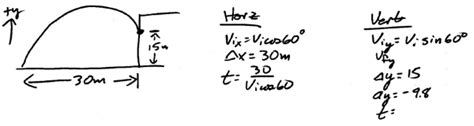 +y
15m
30m
Horz
Vix = Vicos60°
Δx = 30m
t = 30/Vicos60
Vert
Viy = Vi sin60°
Vfy
Δy = 15
ay = -9.8
t =